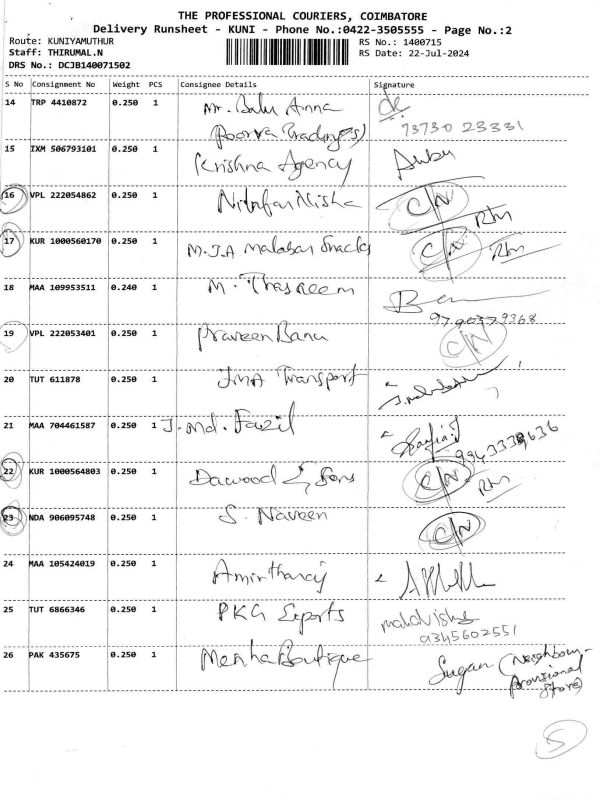 THE PROFESSIONAL COURIERS, COIMBATORE
Delivery Runsheet - KUNI - Phone No.:0422-3505555 - Page No.:2
Route: KUNIYAMUTHUR RS No.: 1400715
Staff: THIRUMAL.N RS Date: 22-Jul-2024
DRS No.: DCJB140071502
S No Consignment No Weight PCS Consignee Details Signature
14 TRP 4410872 0.250 1 Mr. Balu Anna
(Poorva Tradings) 73730 23331
15 IXM 506793101 0.250 1 Krishna Agency Anbu
16 VPL 222054862 0.250 1 Nilofar Nisha C/N Rtn
17 KUR 1000560170 0.250 1 M.J.A Malabar Snacks C/N Rtn
18 MAA 109953511 0.240 1 M. Thasneem
9790379368
19 VPL 222053401 0.250 1 Praveen Banu C/N
20 TUT 611878 0.250 1 JMA Transport
21 MAA 704461587 0.250 1 J. Md. Fazil
9943338636
22 KUR 1000564803 0.250 1 Dawood & Sons C/N Rtn
23 NDA 906095748 0.250 1 S. Naveen C/N
24 MAA 105424019 0.250 1 Amirtharaj
25 TUT 6866346 0.250 1 PKG Exports
9345602551
26 PAK 435675 0.250 1 Menha Boutique Sugan (Neighbour-
Provisional
Store)
5